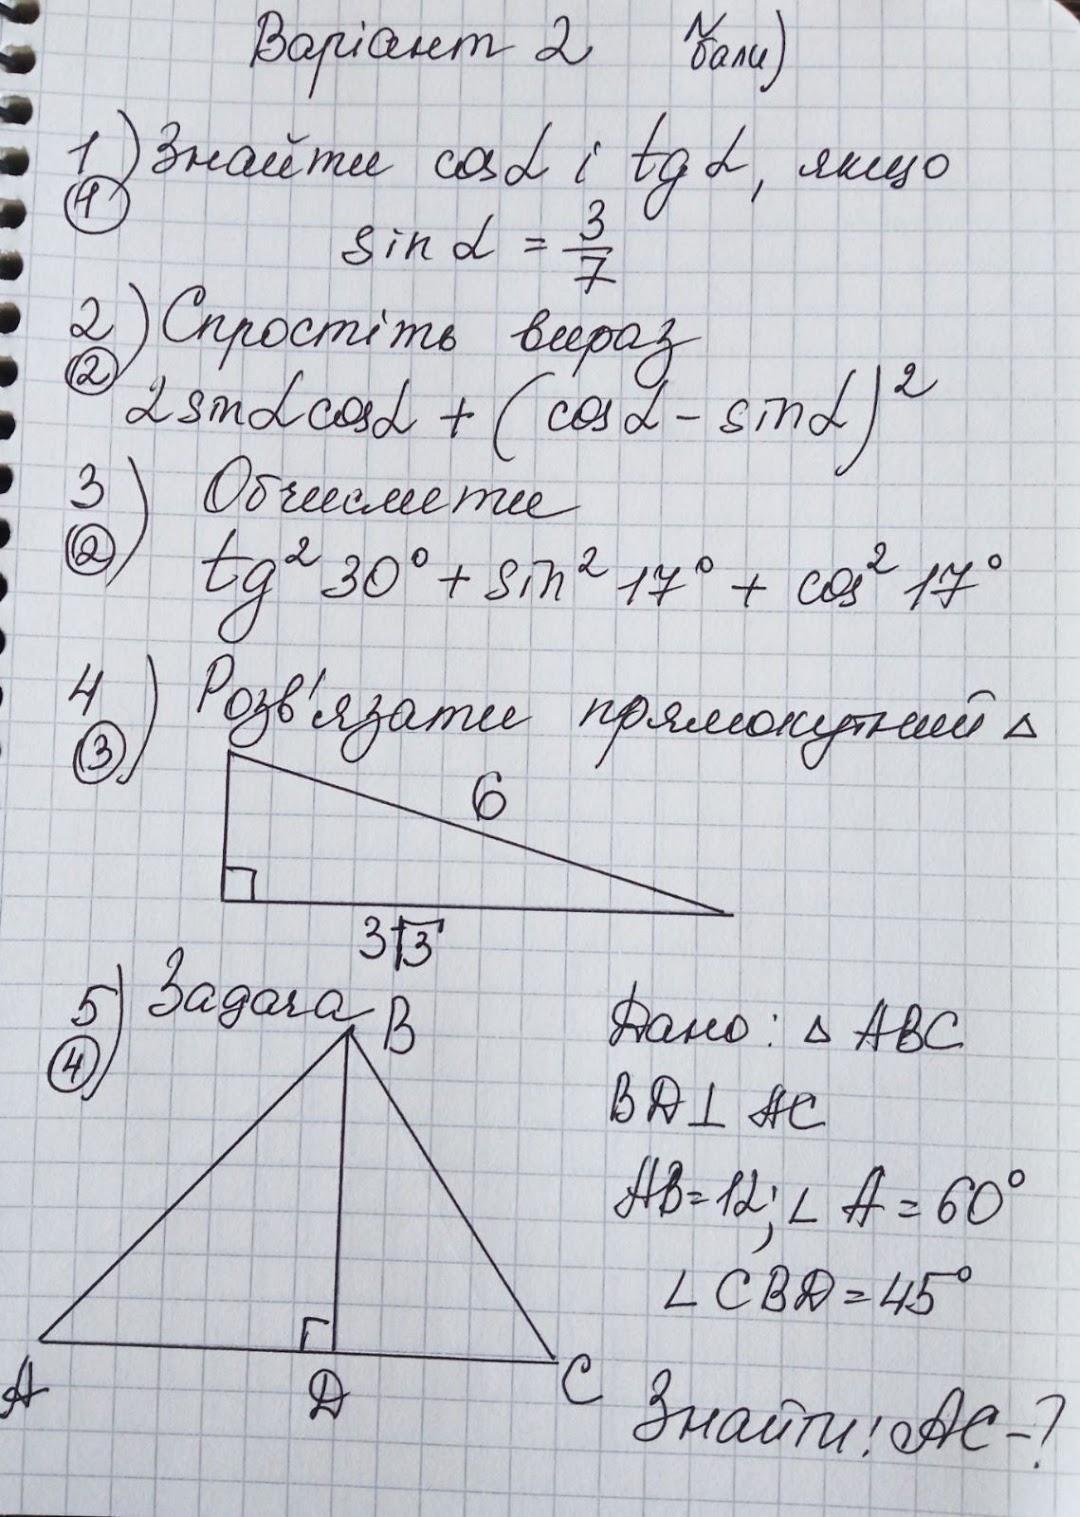 Варіант 2 бали)
1) Знайти cosα і tgα, якщо
1
sin α = 3/7
2) Спростіть вираз
2
2sinα cosα + (cosα - sinα)²
3) Обчислити
2
tg² 30° + sin² 17° + cos² 17°
4) Розв'язати прямокутний △
3
6
3√3
5) Задача
4
B
A
D
C
Дано: △ ABC
BD⊥ AC
AB=12; ∠ A = 60°
∠ CBD = 45°
Знайти: AC-?